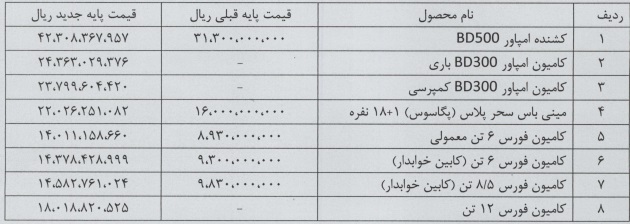 ردیف نام محصول قیمت پایه قبلی ریال قیمت پایه جدید ریال
۱ کشنده امپاور BD500 ۳۱،۳۰۰،۰۰۰،۰۰۰ ۴۲،۳۰۸،۳۶۷،۹۵۷
۲ کامیون امپاور BD300 باری - ۲۴،۳۶۳،۰۲۹،۳۷۶
۳ کامیون امپاور BD300 کمپرسی - ۲۳،۷۹۹،۶۰۴،۴۲۰
۴ مینی باس سحر پلاس (پگاسوس) ۱+۱۸ نفره ۱۶،۰۰۰،۰۰۰،۰۰۰ ۲۲،۰۲۶،۲۵۱،۰۸۲
۵ کامیون فورس ۶ تن معمولی ۸،۹۳۰،۰۰۰،۰۰۰ ۱۴،۰۱۱،۱۵۸،۶۶۰
۶ کامیون فورس ۶ تن (کابین خوابدار) ۹،۳۰۰،۰۰۰،۰۰۰ ۱۴،۳۷۸،۴۲۸،۹۹۹
۷ کامیون فورس ۸/۵ تن (کابین خوابدار) ۹،۸۳۰،۰۰۰،۰۰۰ ۱۴،۵۸۲،۷۶۱،۰۲۴
۸ کامیون فورس ۱۲ تن - ۱۸،۰۱۸،۸۲۰،۵۲۵